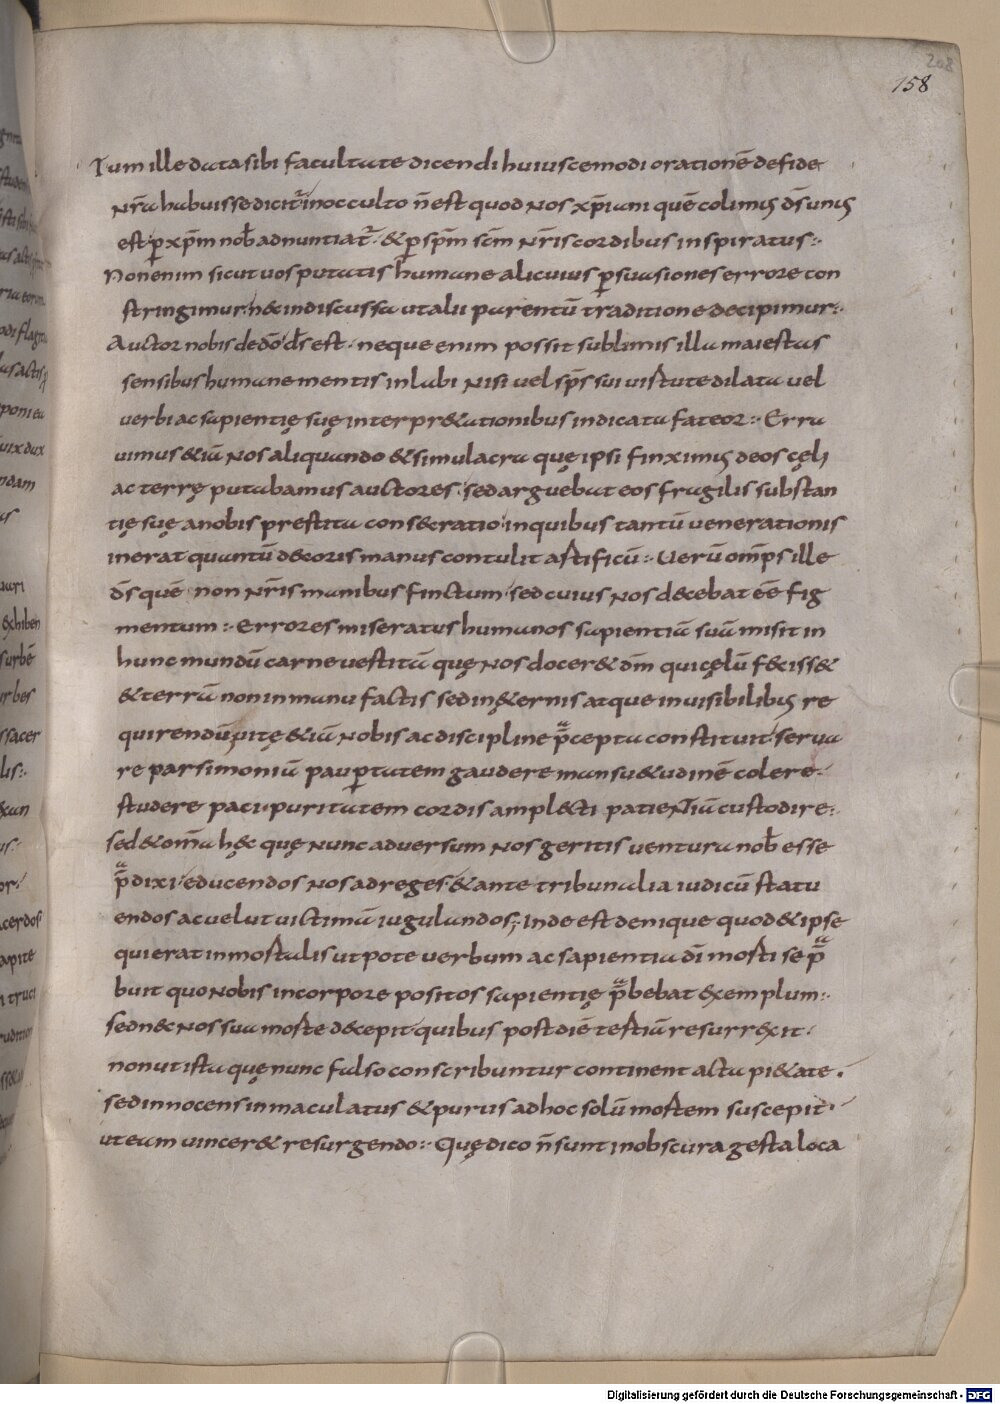 208
158
Tum ille data sibi facultate dicendi huiuscemodi orationē de fide
nr̄a habuisse dicit᷑ in occulto n̄ est quod nos xp̄iani quē colimus ds̄ unus
est ꝑ xp̄m nob̄ adnuntiat᷑· & ꝑ sp̄m sc̄m nr̄is cordibus inspiratus:·
Non enim sicut uos putatis humane alicuius ꝑsuasiones errore con
stringimur, n& indiscussa ut alii parentū traditione decipimur:·
Auctor nobis de dō ds̄ est· neque enim possit sublimis illa maiestas
sensibus humane mentis inlabi nisi uel sp̄s sui uirtute dilata uel
uerbi ac sapientię suę interpr&ationibus indicata fateor:· Erra
uimus &iā nos aliquando & simulacra quę ipsi finximus deos cęli
ac terrę putabamus auctores· sed arguebat eos fragilis substan
tię suę a nobis prestita cons&cratio· in quibus tantū uenerationis
inerat quantū d&coris manus contulit artificū:· Uerū omp̄s ille
ds̄ quē non nr̄is manibus finctum· sed cuius nos decebat eē fig
mentum:· Errores miseratus humanos sapientiā suā misit in
hunc mundū carne uestitā quę nos docer& dm̄ qui cęlū fecisset
& terrā non in manu factis sed in &ernis atque inuisibilibus re
quirendū, uitę &iā nobis ac discipline p̄cepta constituit· serua
re parsimoniā pauꝑtatem gaudere mansu&udinē colere·
studere paci· puritatem cordis ampl&ti patientiā custodire:·
sed & om̄a hęc quę nunc aduersum nos geritis uentura nob̄ esse
p̄dixi· educendos nos ad reges· & ante tribunalia iudicū statu
endos ac uelut uictimā iugulandos; Inde est denique quod & ipse
qui erat inmortalis utpote uerbum ac sapientia dī morti se p̄
buit quo nobis in corpore positos sapientię p̄bebat exemplum:·
Sed nec nos sua morte decepit· quibus post diē tertiā resurrexit·
non ut ista quę nunc falso conscribuntur continent acta pi&ate.
sed innocens inmaculatus & purus ad hoc solū mortem suscepit·
ut eam uincer& resurgendo:· Quę dico n̄ sunt in obscura gesta loca
Digitalisierung gefördert durch die Deutsche Forschungsgemeinschaft - DFG